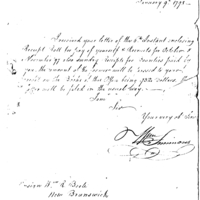 January 9th 1798
I received your letter of the 6th Instant enclosing
Receipt Roll for Pay of yourself & Recruits for October &
November 97 also sundry receipts for monies paid by
you the amount of the same will be passed to your
Credit on the Books of this Office being 152 Dollars
will be filed in the usual way.
I am
Sir
Your very ob Serv
Wm Simmons
Ensign Wm R. Boote
New Brunswick